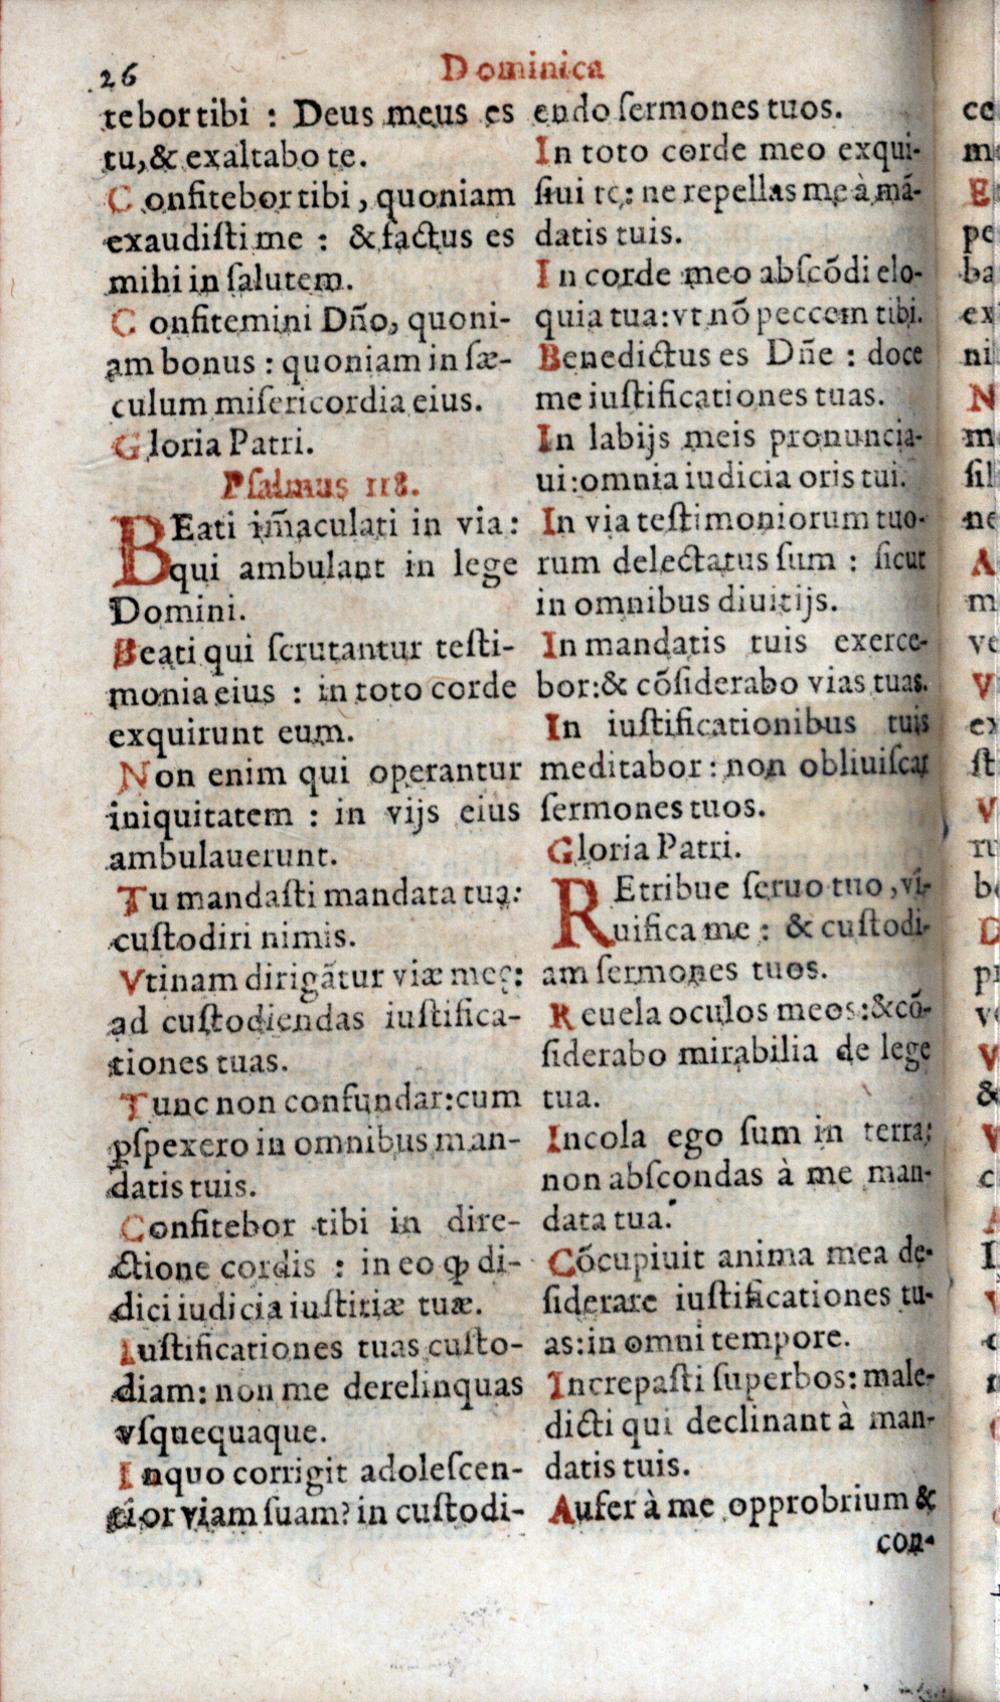 26
Dominica
tebor tibi : Deus meus es
tu, & exaltabo te.
Confitebor tibi, quoniam
exaudiſti me : & factus es
mihi in ſalutem.
Confitemini Dño, quoni-
am bonus : quoniam in ſæ-
culum miſericordia eius.
Gloria Patri.
Pſalmus 118.
BEati im̃aculati in via:
qui ambulant in lege
Domini.
Beati qui ſcrutantur teſti-
monia eius : in toto corde
exquirunt eum.
Non enim qui operantur
iniquitatem : in vijs eius
ambulauerunt.
Tu mandaſti mandata tua:
cuſtodiri nimis.
Vtinam dirigãtur viæ meę:
ad cuſtodiendas iuſtifica-
tiones tuas.
Tunc non confundar: cum
ꝑſpexero in omnibus man-
datis tuis.
Confitebor tibi in dire-
ctione cordis : in eo ꝙ di-
dici iudicia iuſtitiæ tuæ.
Iuſtificationes tuas cuſto-
diam: non me derelinquas
vſquequaque.
In quo corrigit adoleſcen-
tior viam ſuam? in cuſtodi-
endo ſermones tuos.
In toto corde meo exqui-
ſiui te: ne repellas me à mã-
datis tuis.
In corde meo abſcõdi elo-
quia tua: vt nõ peccem tibi.
Benedictus es Dñe : doce
me iuſtificationes tuas.
In labijs meis pronuncia-
ui: omnia iudicia oris tui.
In via teſtimoniorum tuo-
rum delectatus ſum : ſicut
in omnibus diuitijs.
In mandatis tuis exerce-
bor: & cõſiderabo vias tuas.
In iuſtificationibus tuis
meditabor: non obliuiſcar
ſermones tuos.
Gloria Patri.
REtribue ſeruo tuo, vi-
uifica me : & cuſtodi-
am ſermones tuos.
Reuela oculos meos: & cõ-
ſiderabo mirabilia de lege
tua.
Incola ego ſum in terra:
non abſcondas à me man-
data tua.
Cõcupiuit anima mea de-
ſiderare iuſtificationes tu-
as: in omni tempore.
Increpaſti ſuperbos: male-
dicti qui declinant à man-
datis tuis.
Aufer à me opprobrium &
con-